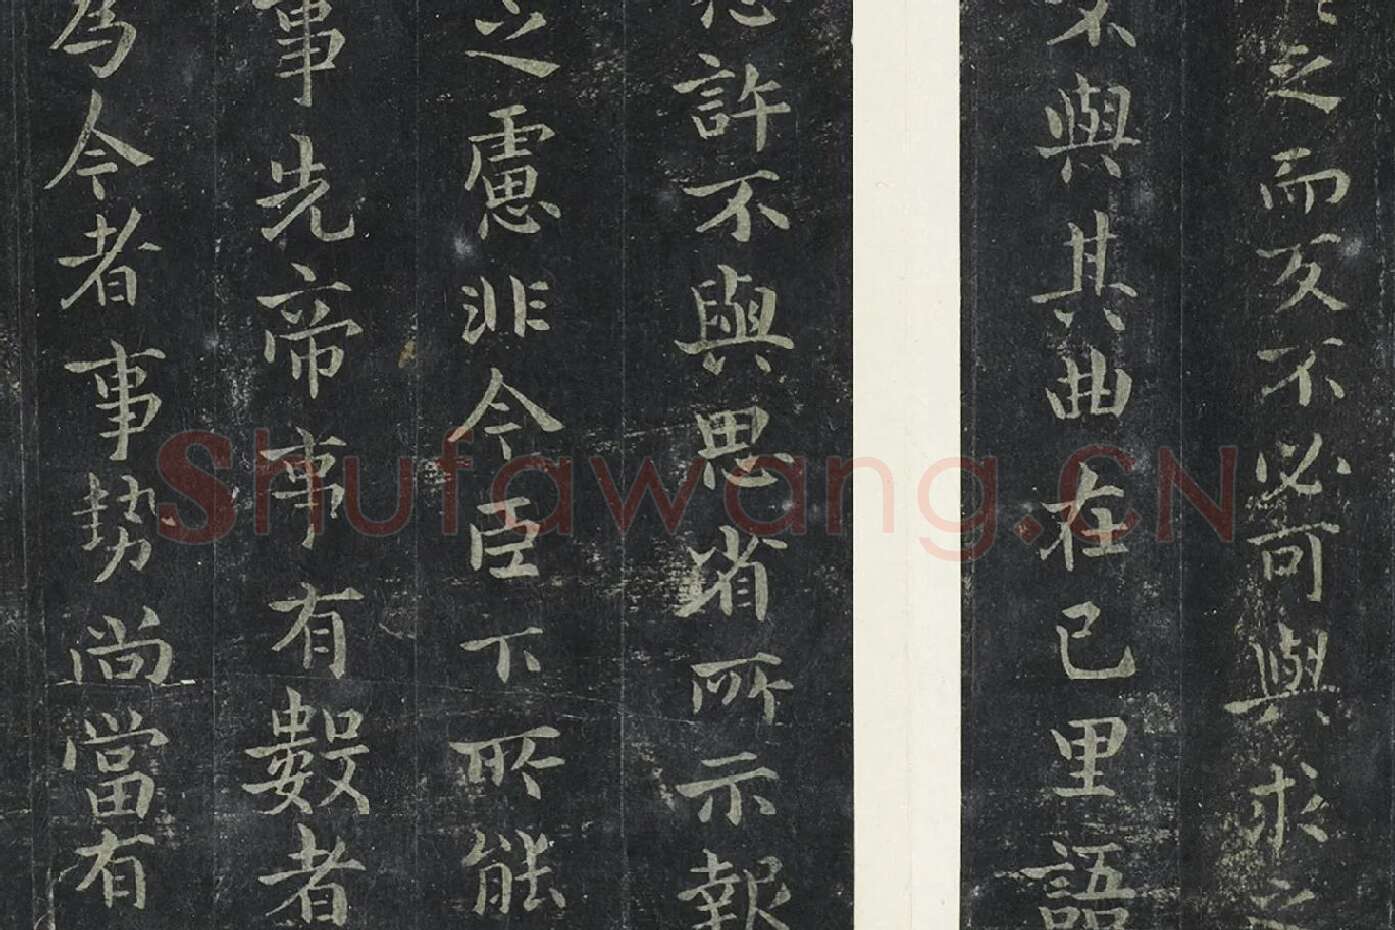 之而反不必可與求之
不與其曲在已里語
許不與思省所示報
之慮非今臣下所能
事先帝事有數者
為今者事勢尚當有
Shufawang.CN